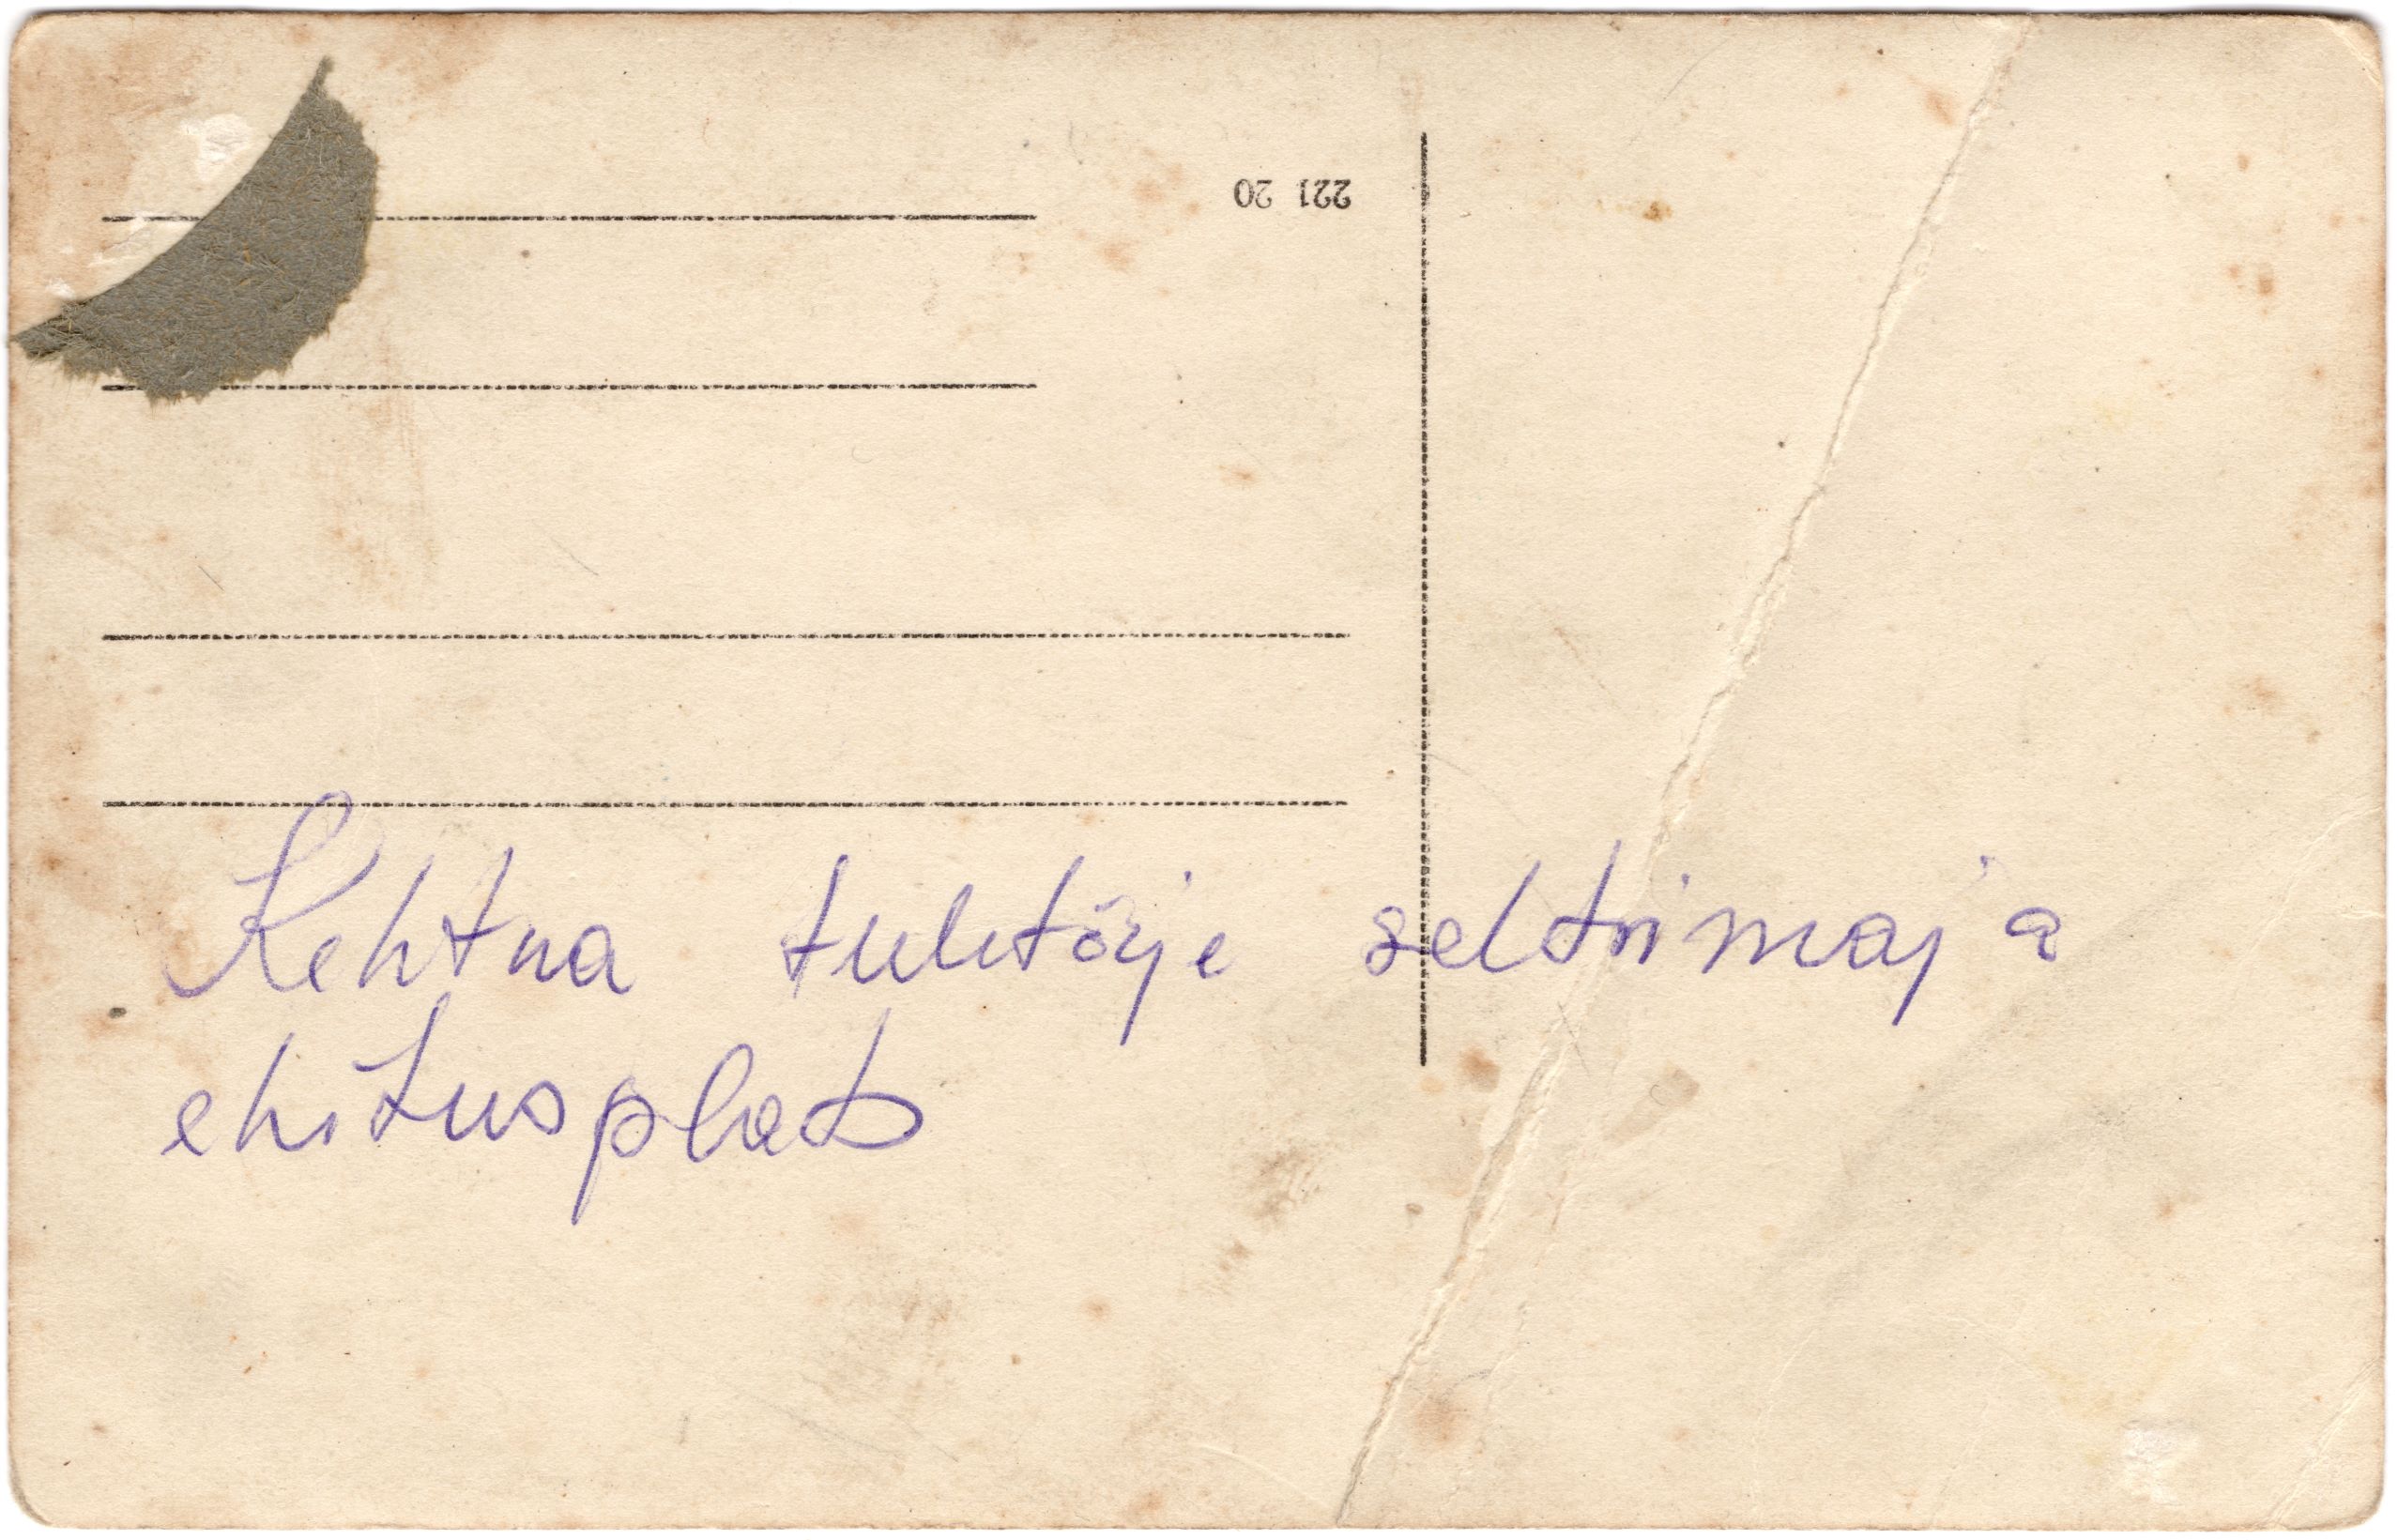 221 20
Kehtna tuletõrje seltsimaja
ehitusplats